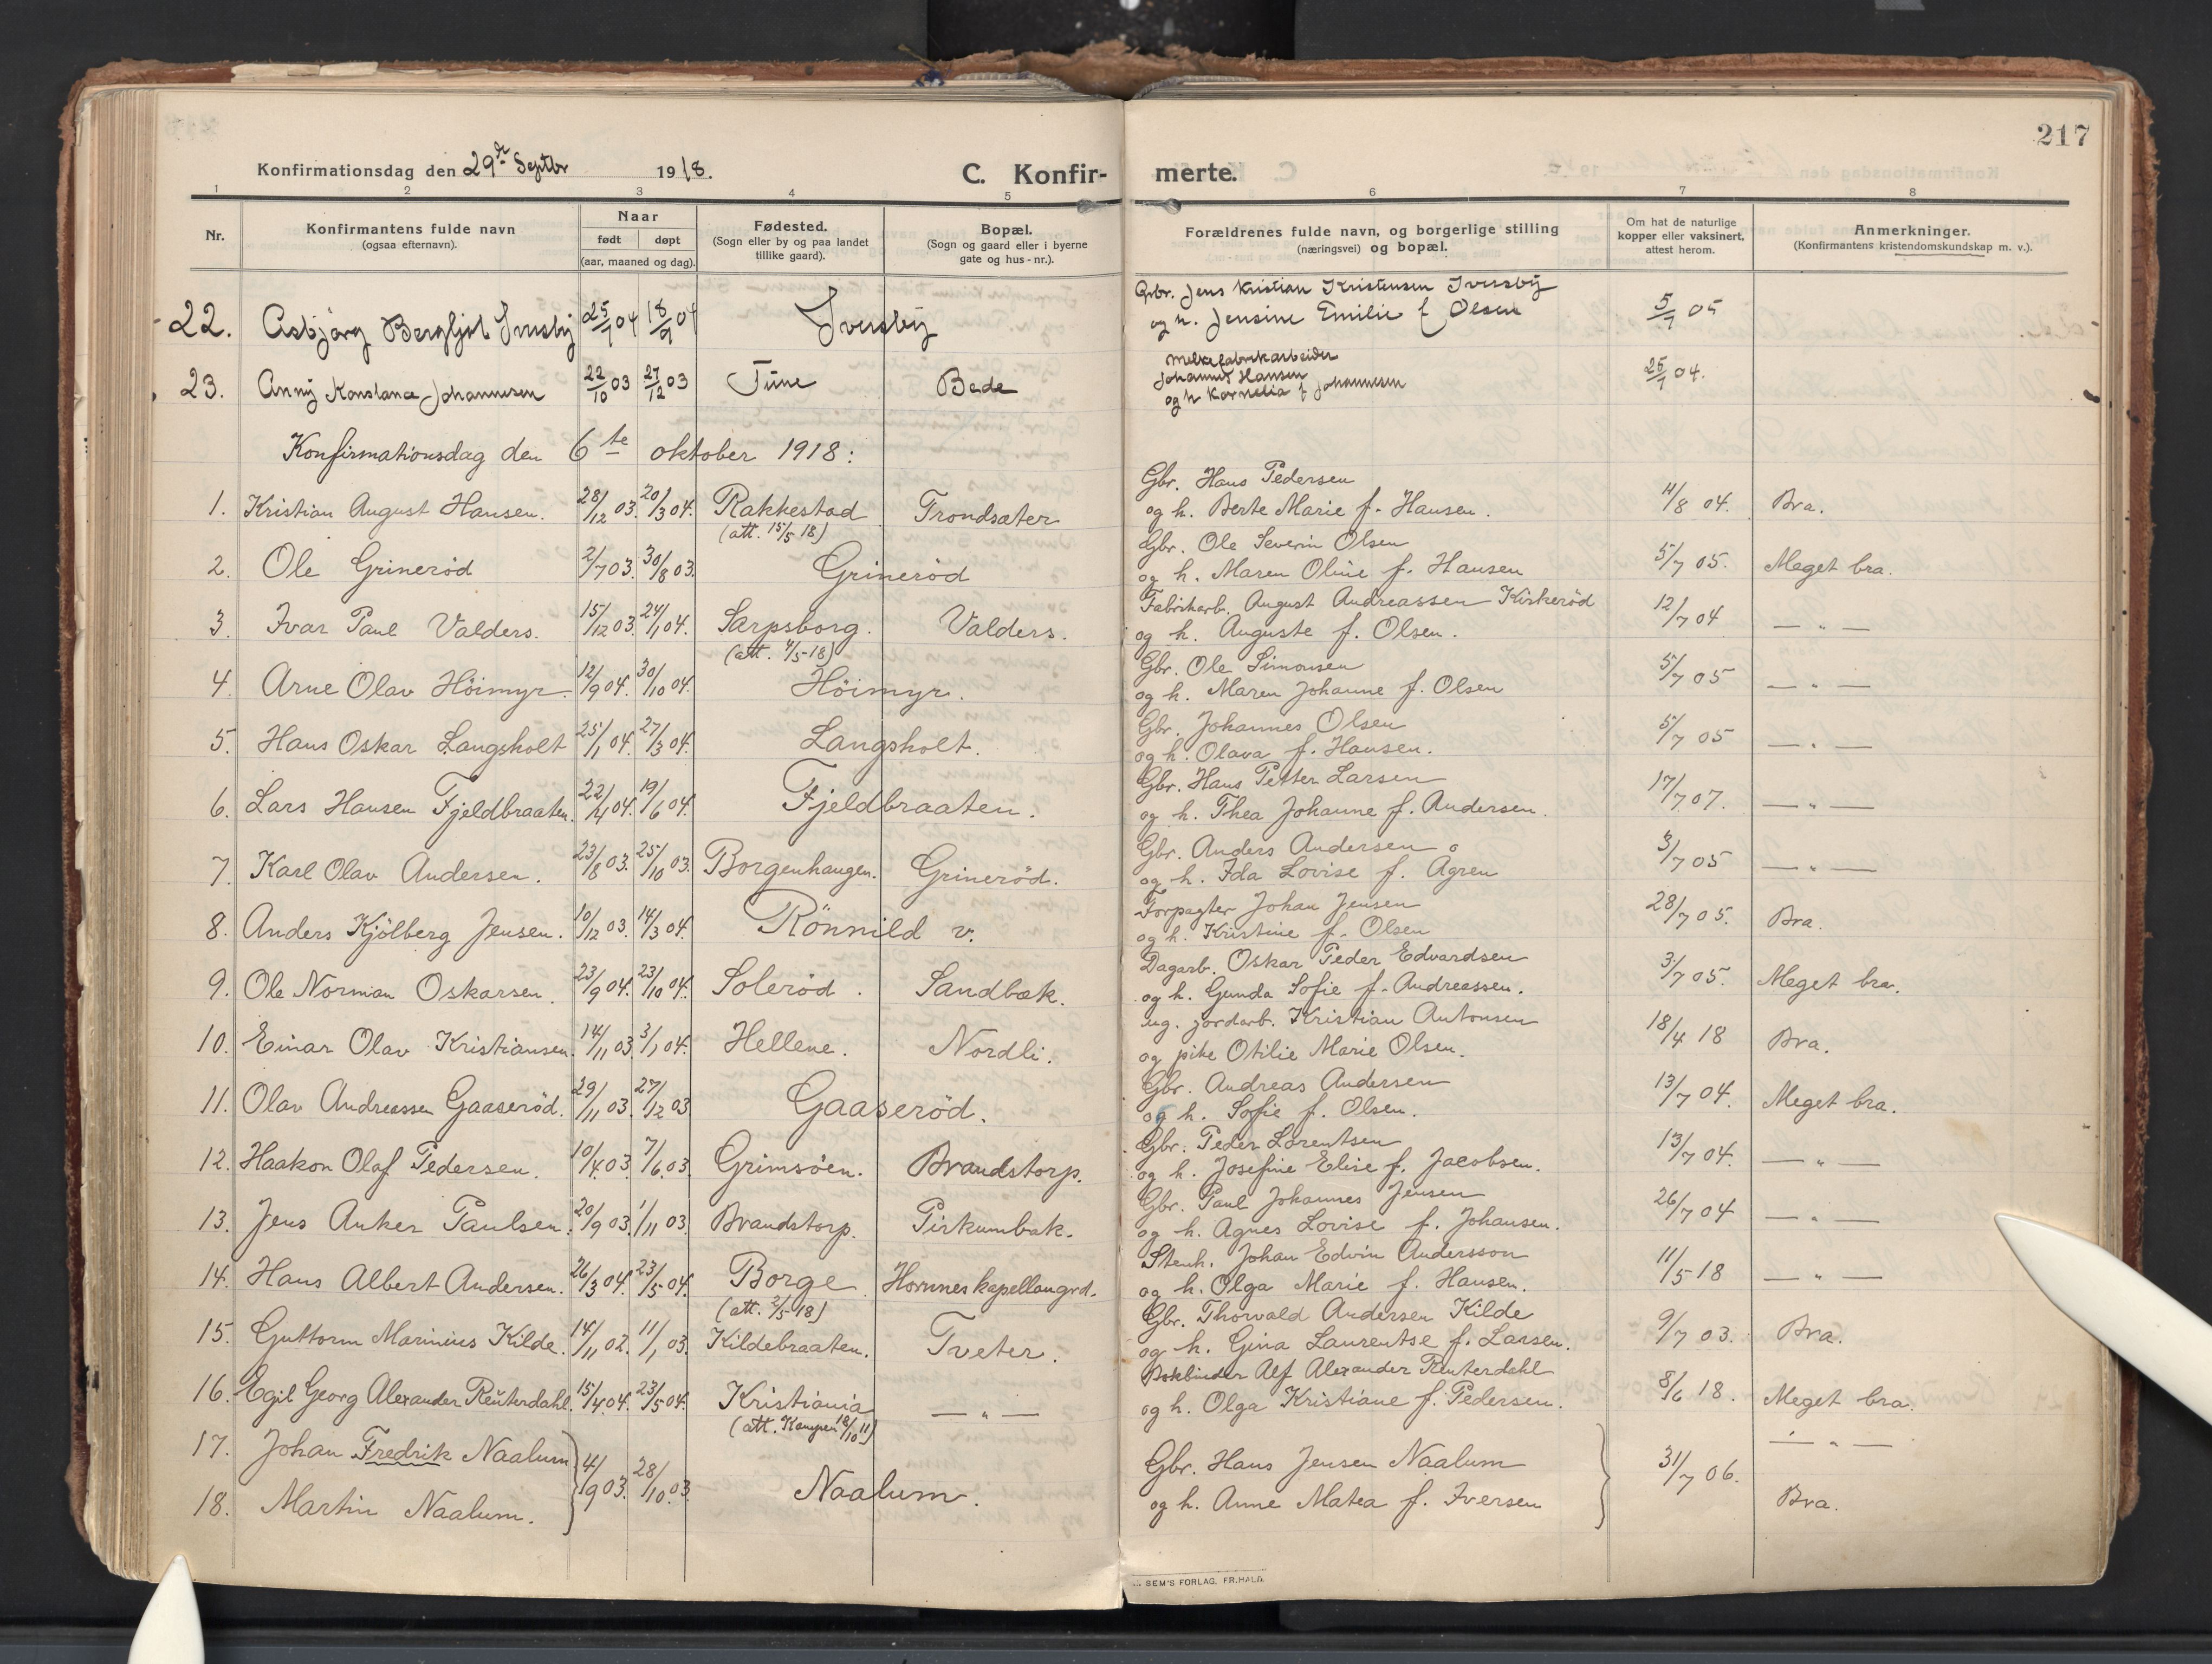 217
Konfirmationsdag den 29de Septbr 1918.
C. Konfir-merte.
1 2 3 4 5 6 7 8
Nr.
Konfirmantens fulde navn
(ogsaa efternavn).
Naar
født døpt
(aar, maaned og dag).
Fødested.
(Sogn eller by og paa landet
tillike gaard).
Bopæl.
(Sogn og gaard eller i byerne
gate og hus-nr.).
Forældrenes fulde navn, og borgerlige stilling
(næringsvei) og bopæl.
Om hat de naturlige
kopper eller vaksinert,
attest herom.
Anmerkninger.
(Konfirmantens kristendomskundskap m. v.).
22. Asbjørg Bergljot Iversby 25/7 04 18/9 04 Iversby Gbr. Jens Kristian Kristensen Iversby 5/7 05
og h. Jensine Emilie f. Olsen
23. Anny Konstanse Johannesen 22/10 03 27/12 03 Tune Bede Melkefabrikarbeider 26/7 04.
Johannes Hansen
og h. Kornelia f. Johannesen
Konfirmationsdag den 6te oktober 1918:
1. Kristian August Hansen. 28/12 03. 20/3 04. Rakkestad Trondsæter Gbr. Hans Pedersen 11/8 04. Bra.
(att. 15/5 18) og h. Berte Marie f. Hansen.
2. Ole Grinerød 2/7 03. 30/8 03. Grinerød Gbr. Ole Severin Olsen 5/7 05. Meget bra.
og h. Maren Oline f. Hansen
3. Ivar Paul Valders. 15/12 03. 24/1 04. Sarpsborg. Valders. Fabrikarb. August Andreassen Kirkerød 12/7 04 — " —
(att. 4/5-18) og h. Auguste f. Olsen.
4. Arne Olav Höimyr. 12/9 04. 30/10 04. Höimyr. Gbr. Ole Simonsen 5/7 05 — " —
og h. Maren Johanne f. Olsen
5. Hans Oskar Langsholt 25/1 04. 27/3 04. Langsholt. Gbr. Johannes Olsen 5/7 05 — " —
og h. Olava f. Hansen.
6. Lars Hansen Fjeldbraaten. 22/4 04. 19/6 04. Fjeldbraaten. Gbr. Hans Petter Larsen 17/7 07. — " —
og h. Thea Johanne f. Andersen.
7. Karl Olav Andersen. 23/8 03. 25/10 03. Borgenhaugen. Grinerød. Gbr. Anders Andersen 3/7 05 — " —
og h. Ida Lovise f. Ågren
8. Anders Kjölberg Jensen. 10/12 03. 14/3 04. Rönnild v. Forpagter Johan Jensen 28/7 05. Bra.
og h. Kristine f. Olsen
9. Ole Norman Oskarsen. 23/9 04. 23/10 04. Solerød. Sandbæk. Dagarb. Oskar Peder Edvardsen 3/7 05. Meget bra.
og h. Gunda Sofie f. Andreassen.
10. Einar Olav Kristiansen. 14/11 03. 3/1 04. Hellene. Nordli. ug. jordarb. Kristian Antonsen 18/4 18 Bra.
og pike Otilie Marie Olsen.
11. Olav Andreassen Gaaserød. 29/11 03. 27/12 03 Gaaserød. Gbr. Andreas Andersen 13/7 04. Meget bra.
og h. Sofie f. Olsen.
12. Haakon Olaf Pedersen. 10/4 03. 7/6 03. Grimsöen. Brandstorp. Gbr. Peder Lorentsen 13/7 04. — " —
og h. Josefine Elise f. Jacobsen.
13. Jens Anker Paulsen. 20/9 03. 1/11 03. Brandstorp. Pirkumbæk. Gbr. Paul Johannes Jensen 26/7 04 — " —
og h. Agnes Lovise f. Johansen.
14. Hans Albert Andersen. 26/3 04. 23/5 04. Borge. Hornneskapellangrd. Stenh. Johan Edvin Andersson 11/5 18 — " —
(att. 2/5 18) og h. Olga Marie f. Hansen.
15. Guttorm Marinius Kilde. 14/11 02. 11/1 03. Kildebraaten. Tveter. Gbr. Thorvald Andersen Kilde 9/7 03. Bra.
og h. Gina Laurentse f. Larsen.
16. Egil Georg Alexander Reuterdahl. 15/4 04. 23/5 04. Kristiania — " — Bokbinder Alf Alexander Reuterdahl 8/6 18. Meget bra.
(att. Kampen 18/10 11) og h. Olga Kristiane f. Pedersen.
17. Johan Fredrik Naalum 4/9 03. 28/10 03. Naalum. Gbr. Hans Jensen Naalum 31/7 06. — " —
18. Martin Naalum. og h. Anne Matea f. Iversen Bra.
SEM'S FORLAG, FR.HALD.